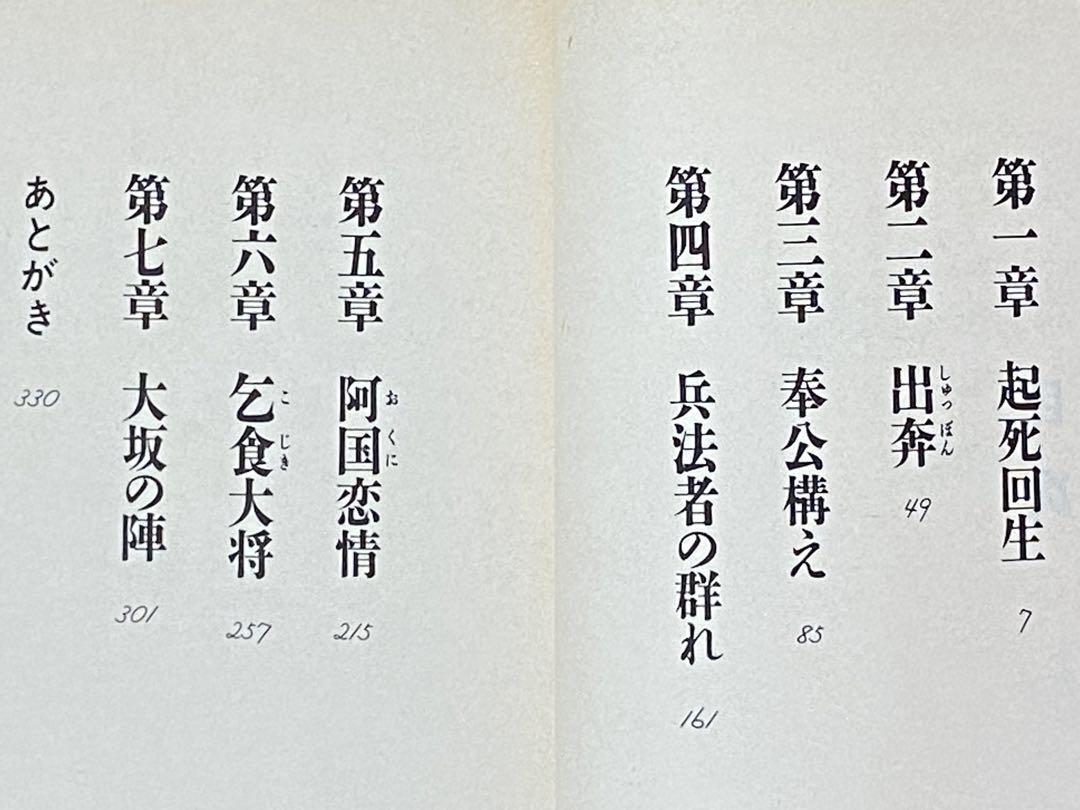 第一章 起死回生 7
第二章 出奔 49
しゅっぽん
第三章 奉公構え 85
第四章 兵法者の群れ 161
第五章 阿国恋情 215
おくに
第六章 乞食大将 257
こじき
第七章 大坂の陣 301
あとがき 330